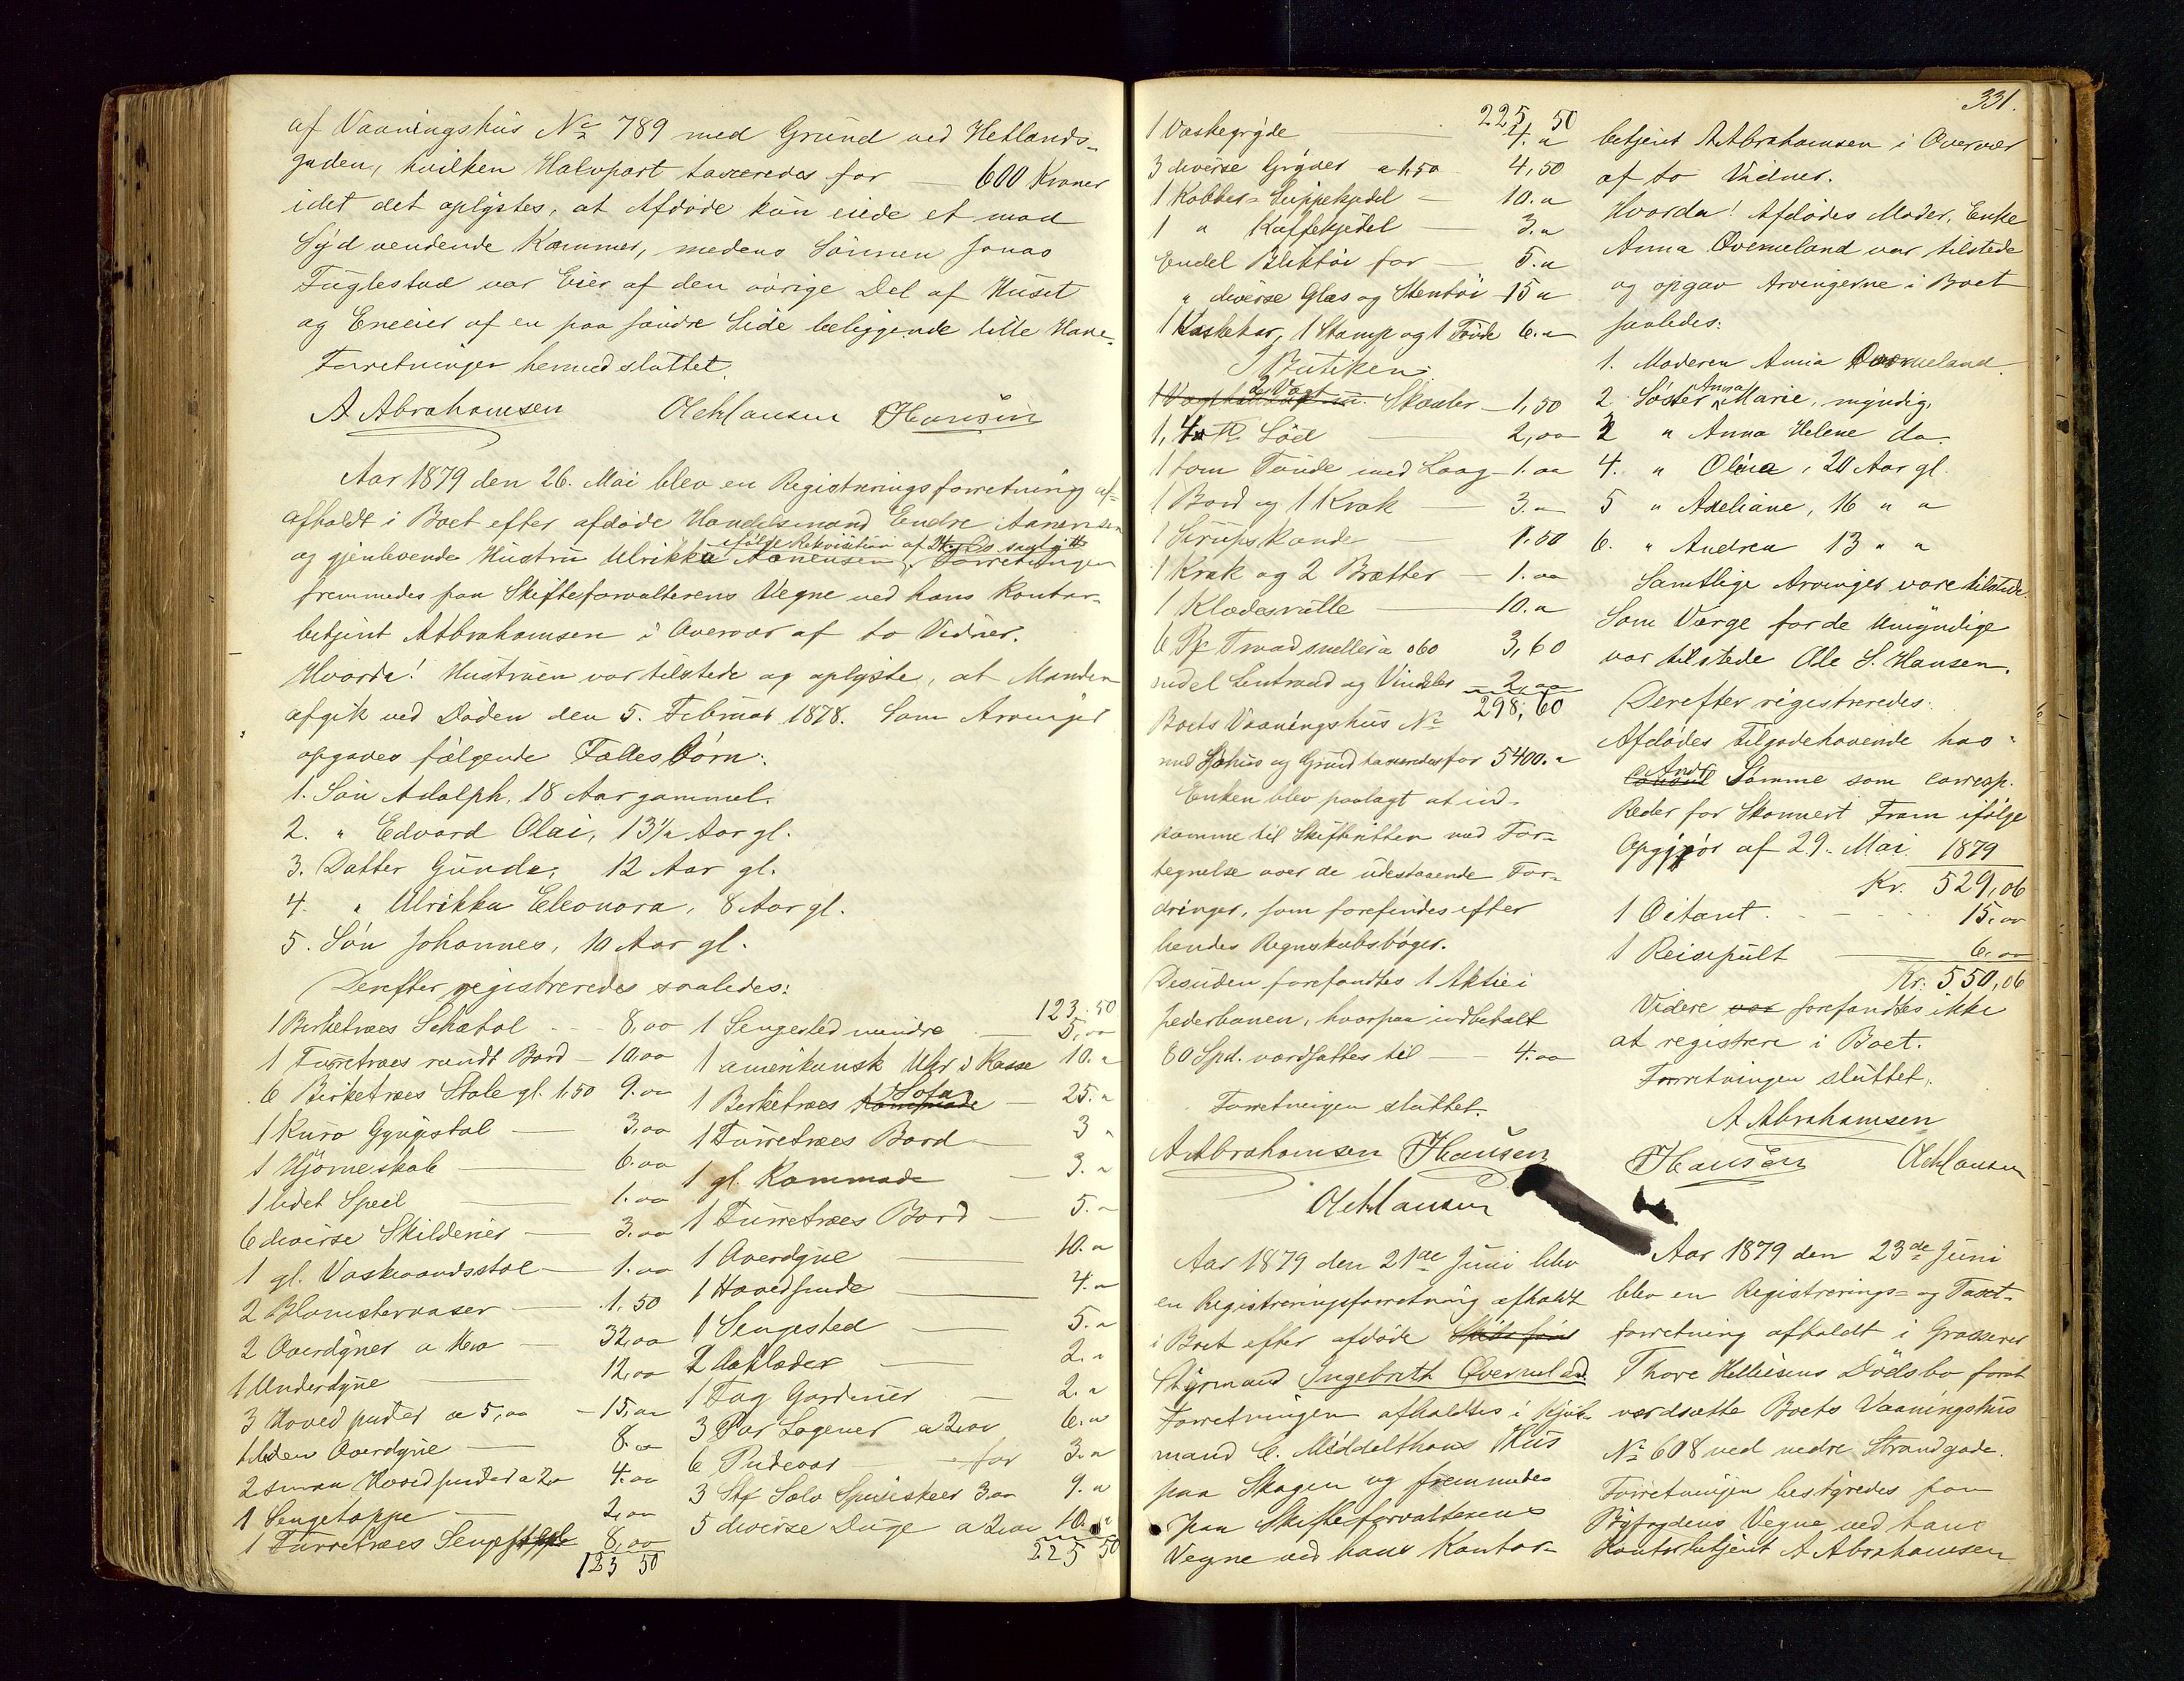 af Vaaningshus No 789 med Grund ved Hetlands-
gaden, hvilken Halvpart taxeredes for — 600 Kroner
idet det oplystes, at Afdøde kun eiede et mod
Syd vendende Kammer, medens Sønnen Jonas
Fuglestad var Eier af den øvrige Del af Huset
og Eneeier af en paa søndre Side beliggende lille Have.
Forretningen hermed sluttet.
A Abrahamsen OChHansen THansen
Aar 1879 den 26. Mai blev en Registreringsforretning af-
afholdt i Boet efter afdøde Handelsmand Endre Aanensen
ifølge Rekvisition af 24 ds
og gjenlevende Hustru Ulrikka Aanensen. Forretningen
fremmedes paa Skifteforvalterens Vegne ved hans Kontor-
betjent AAbrahamsen i Overvær af to Vidner.
Hvorda! Hustruen var tilstede og oplyste, at Manden
afgik ved Døden den 5. Februar 1878. Som Arvinger
opgaves følgende FællesBørn:
1. Søn Adolph, 18 Aar gammel.
2. " Edvard Olai, 13½ Aar gl.
3. Datter Gunda, 12 Aar gl.
4. " Ulrikka Eleonora, 8 Aar gl.
5. Søn Johannes, 10 Aar gl.
Derefter registreredes saaledes:
1 Birketræes Schatol - - 8,00
1 Furretræes rundt Bord — 10,00
6 Birketræes Stole gl. 1.50 9.00
1 Kurv Gyngestol — 3,00
1 Hjørneskab — 6.00
1 lidet Speil — 1.00
6 diverse Skilderier — 3.00
1 gl. Vaskevandsstol — 1.00
2 Blomstervaser — 1,50
2 Overdyner a 16.00 — 32,00
1 Underdyne — 12,00
3 Hovedputer a 5,00 — 15,00
1 liden Overdyne — 8.00
2 smaa Hovedputer a 2.00 4.00
1 Sengetæppe — 2,00
1 Furretræes Seng 8,00
123 50
123 50
1 Sengested mindre — 5,00
1 amerikansk Uhr i Kasse 10. "
1 Birketræes Sofa — 25. "
1 Furretræes Bord — 3 "
1 gl. Kommode — 3. "
1 Furretræes Bord — 5. "
1 Overdyne — 10. "
1 Hovedpude — 4. "
1 Sengested — 5. "
2 Aaklæder — 2. "
1 Fag Gardiner — 2. "
3 Par Lagener a 2.00 6. "
6 Pudevar — for 3. "
3 Stk Sølv Spiseskeer 3.00 9. "
5 diverse Duge a 2.00 10. "
225 50
225 50
1 Vaskegryde — 4. "
3 diverse Gryder a 1,50 4,50
1 Kobber-Suppekjedel — 10. "
1 " Kaffekjedel — 3. "
Endel Bliktøi for — 5. "
" diverse Glas og Stentøi — 15 "
1 Vaskekar, 1 Stamp og 1 Tønde 6. "
I Butiken
Skaaler — 1,50
Lod — 2,00
1 tom Tønde med Laag — 1.00
1 Bord og 1 Krak — 3. "
1 Sirupskande — 1.50
1 Krak og 2 Brætter — 1.00
1 Klædesrulle — 10. "
6 Traadsneller a 0 60 3,60
endel Lintraad og — 2,00
298,60
Boets Vaaningshus No
med Søhus og Grund taxeredes for 5400. "
Enken blev paalagt at ind-
komme til Skifteretten med For-
tegnelse over de udestaaende For-
dringer, som forefindes efter
hendes Regnskabsbøger.
Desuden forefandtes 1 Aktie i
Jederbanen, hvorpaa indbetalt
80 Spd. værdsattes til — 4.00
Forretningen sluttet.
AAbrahamsen THansen
OChHansen
Aar 1879 den 21de Juni blev
en Registreringsforretning afholdt
i Boet efter afdøde
Styrmand Ingebreth Qvemeland.
Forretningen afholdtes i Kjøb-
mand C. Middelthons Hus
paa Skagen og fremmedes
paa Skifteforvalterens
Vegne ved hans Kontor-
331.
betjent AAbrahamsen i Overvær
af to Vidner.
Hvorda! Afdødes Moder, Enke
Anna Qvemeland var tilstede
og opgav Arvingerne i Boet
saaledes:
1. Moderen Anna Qvemeland
2 Søster Anna Marie, myndig.
" Anna Helene do.
4. " Olina, 20 Aar gl.
5 " Axeliane, 16 " "
6. " Andrea 13 " "
Samtlige Arvinger vare tilstede.
Som Værge for de Umyndige
var tilstede Ole S. Hansen.
Derefter registreredes:
Afdødes Tilgodehavende hos
Samme som corresp.
Reder for Skonnert Fram ifølge
Opgjør af 29. Mai 1879
Kr. 529,06
1 Octant - - - 15.00
1 Reisepult — 6.00
Kr. 550,06
Videre forefandtes ikke
at registrere i Boet.
Forretningen sluttet.
A Abrahamsen
THansen OChHansen
Aar 1879 den 23de Juni
blev en Registrerings- og Taxt-
forretning afholdt i Grosserer
Thore Helliesens Dødsbo forat
værdsætte Boets Vaaningshus
No 608 ved nedre Strandgade.
Forretningen bestyredes paa
Byfogdens Vegne ved hans
Kontorbetjent A Abrahamsen